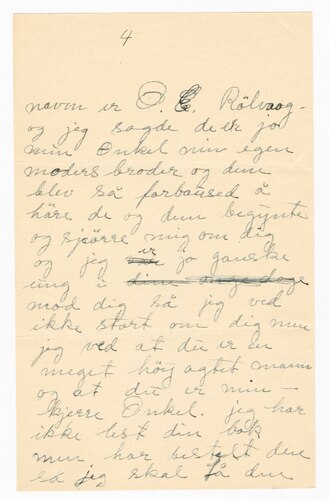 4
navn er O. E. Rölvaag -
og jeg sagde de er jo
min Onkel min egen
moders broder og dem
blev så forbaused å
häre de og dem begynte
og spörre mig om dig
og jeg er jo ganske
ung i
mod dig så jeg ved
ikke stort om dig men
jeg ved at du er en
meget höy agtet mann
og at du er min -
kjerre Onkel. jeg har
ikke lest din bok
men har bestelt den
så jeg skal få den